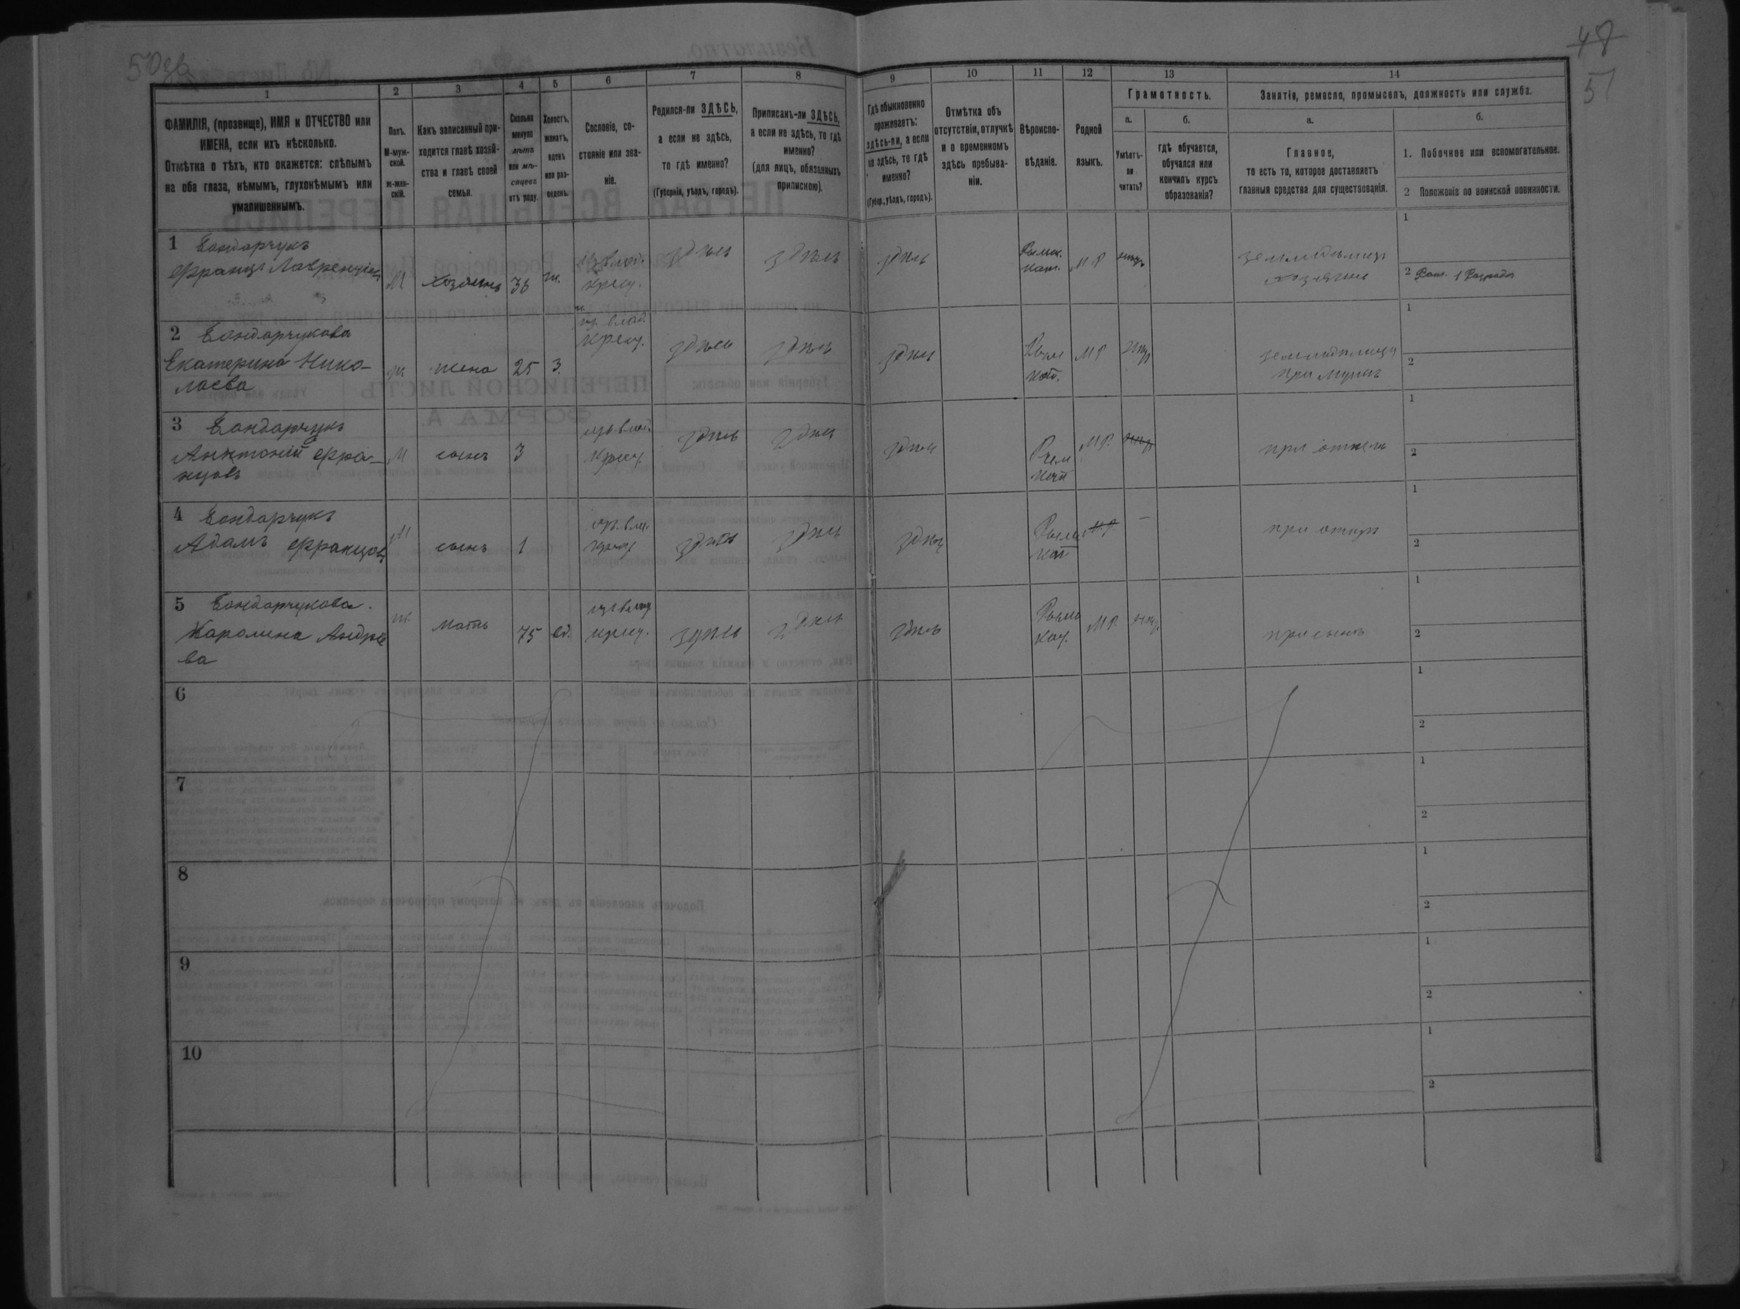 50 об
48
51
1
2
3
4
5
6
7
8
9
10
11
12
13
14
ФАМИЛІЯ, (прозвище), ИМЯ и ОТЧЕСТВО или
ИМЕНА, если ихъ нѣсколько.
Отмѣтка о тѣхъ, кто окажется: слѣпымъ
на оба глаза, нѣмымъ, глухонѣмымъ или
умалишеннымъ.
Полъ.
М-муж-
ской.
ж-жен-
скій.
Какъ записанный при-
ходится главѣ хозяй-
ства и главѣ своей
семьи.
Сколько
минуло
лѣтъ
или мѣ-
сяцевъ
отъ роду.
Холостъ,
женатъ,
вдовъ
или раз-
веденъ.
Сословіе, со-
стояніе или зва-
ніе.
Родился-ли ЗДѢСЬ,
а если не здѣсь,
то гдѣ именно?
(Губернія, уѣздъ, городъ).
Приписанъ-ли ЗДѢСЬ,
а если не здѣсь, то гдѣ
именно?
(для лицъ, обязанныхъ
припискою).
Гдѣ обыкновенно
проживаетъ:
здѣсь-ли, а если
не здѣсь, то гдѣ
именно?
(Губер., уѣздъ, городъ).
Отмѣтка объ
отсутствіи, отлучкѣ
и о временномъ
здѣсь пребыва-
ніи.
Вѣроиспо-
вѣданіе.
Родной
языкъ.
Грамотность.
а.
Умѣетъ-
ли
читать?
б.
гдѣ обучается,
обучался или
кончилъ курсъ
образованія?
Занятіе, ремесло, промыселъ, должность или служба.
а.
Главное,
то есть то, которое доставляетъ
главныя средства для существованія.
б.
1. Побочное или вспомогательное.
2 Положеніе по воинской повинности.
1 Бондарчукъ
Францъ Лаврентіевъ
М
хозяинъ
36
ж.
крест.
здѣсь
здѣсь
здѣсь
Римск.
кат.
М Р
нѣтъ
земледѣлецъ
хозяинъ
1
2
2 Бондарчукова
Екатерина Нико-
лаева
ж
жена
25
З.
крест.
здѣсь
здѣсь
здѣсь
Римс
кат.
М Р
нѣтъ
при мужѣ
1
2
3 Бондарчукъ
Антоній Фран-
цовъ
М
сынъ
3
крест
здѣсь
здѣсь
здѣсь
Римс
кат
М Р.
при отцѣ
1
2
4 Бондарчукъ
Адамъ Францовъ
М
сынъ
1
крест
здѣсь
здѣсь
здѣсь
Римс
кат
М Р
—
при отцѣ
1
2
5 Бондарчукова
Каролина Андрее
ва
ж.
мать
75
вд.
крест.
здѣсь
здѣсь
здѣсь
Римс
кат.
М Р.
нѣтъ
при сынѣ
1
2
6
1
2
7
1
2
8
1
2
9
1
2
10
1
2